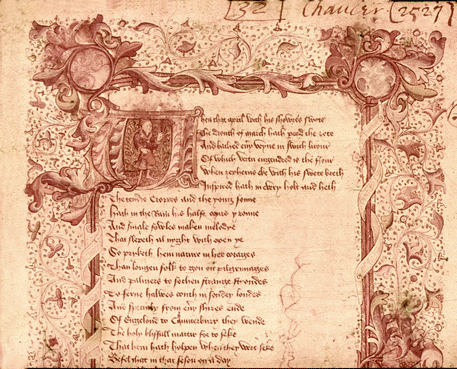 [32] Chaucer (2527)
hen that april with his showres swote
The drouth of march hath perced the rote
And bathed euy veyne in swich licour
Of which vertu engendred is the flour
When zepherus eke with his swete breth
Inspired hath in euery holt and heth
The tendre Croppes and the yong sonne
Hath in the Ram his halfe cours y ronne
And smale fowles maken melodye
That slepeth al nyght with open ye
So priketh hem nature in her corages
Than longen folk to gon on pilgrymages
And palmers to sechen strange strondes
To ferne halwes couth in sondry londes
And specialy from euy shires ende
Of Engelond to Caunterbury they wende
The holy blisfull martir for to seke
That hem hath holpen whan they were seke
Befel that in that seson on a day